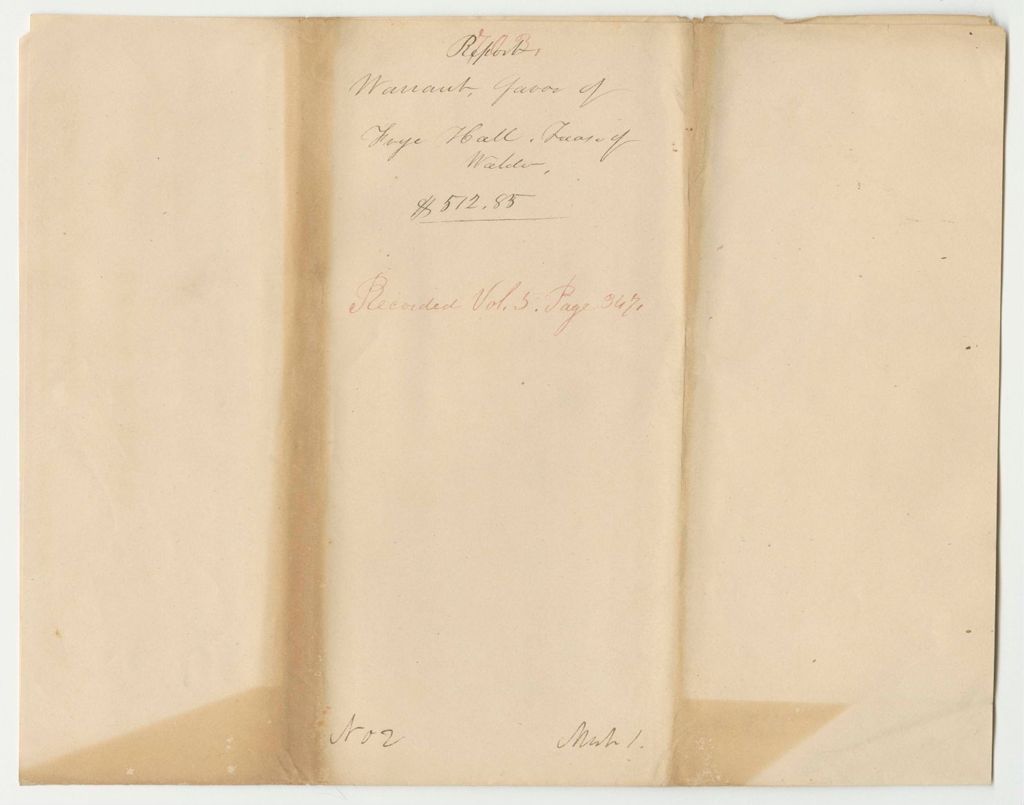 Report,
Warrant, favor of
Frye Hall. Treas. of
Waldo,
$512.85
Recorded Vol. 5. Page 347.
No 2